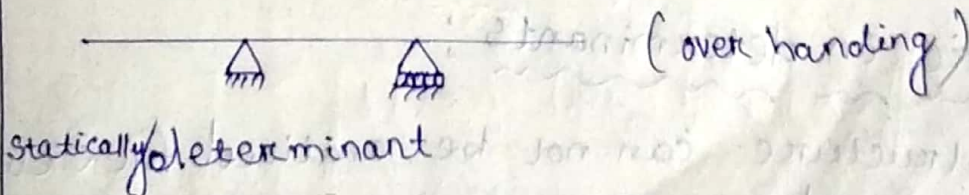 (over handing)
statically determinant